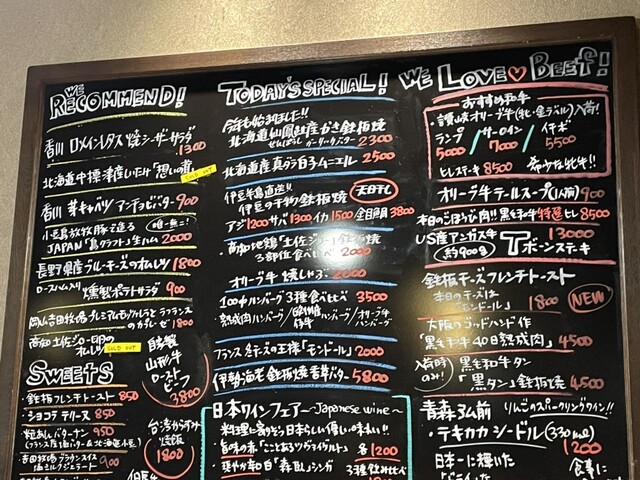 WE RECOMMEND!
香川 ロメインレタス 焼シーザーサラダ 1300
北海道中標津産しいたけ「想いの茸」 SOLD OUT
香川 芽キャベツ アンチョビバター 900
小豆島放牧豚で造る 唯一無二!
JAPAN「島グラフト」生ハム 2000
長野県産ブルーチーズのオムレツ 1800
ロースハム入り 燻製ポテトサラダ 900
岡山吉田牧場プレミアムモッツァレラと ラフランス
のカプレーゼ 1800
高知 土佐ジロー卵の
オムレツ SOLD OUT
自家製
山形牛
ロースト
ビーフ
3800
SWEETS
・鉄板フレンチトースト 850
・ショコラテリーヌ 850
・粒あんバターナン 950
・吉田牧場ブラウンスイス
塩ミルクジェラート 900
台湾からすみ
焼飯
1800
TODAY'S SPECIAL!
今年も始りました!!
北海道仙鳳趾産かき鉄板焼
せんぽうし ガーリックバター 2300
北海道産真ダラ白子ムニエル 2500
伊豆半島直送!!
伊豆の干物鉄板焼 天日干し
アジ1200 サバ1300 イカ1500 金目鯛3800
・高知地鶏「土佐ジロー」鉄板焼
3部位食べ比べ 2000
オリーブ牛 焼しゃぶ 2000
100%ハンバーグ 3種食べ比べ 3500
熟成肉ハンバーグ/
オリーブ牛
ハンバーグ
フランス 冬チーズの王様「モンドール」 2000
伊勢海老 鉄板焼香草バター 5800
日本ワインフェア ～Japanese wine～
料理に寄りそう日本らしい優しい味わい!!
・旨味の赤「ことあるツヴァイゲルト」 各1200
3種飲み比べ
WE LOVE♡BEEF!
おすすめ和牛
・讃岐オリーブ牛(牝・金ラベル)入荷!
ランプ 5000 / サーロイン 7000 / イチボ 5500
ヒレステーキ 8500 希少な牝牛!!
オリーブ牛テールスープ(1人前) 900
本日のごほうび肉!! 黒毛和牛特選ヒレ 8500
US産アンガス牛 13000
約900g Tボーンステーキ
鉄板チーズフレンチトースト
本日のチーズは
「モンドール」 1800 NEW
大阪のゴッドハンド作
「黒毛和牛40日熟成肉」 4500
入荷時
のみ!
黒毛和牛タン
「黒タン」鉄板焼 4500
青森 弘前 りんごのスパークリングワイン!!
・テキカカシードル (330ml)
1200
日本一に輝いた
食事に